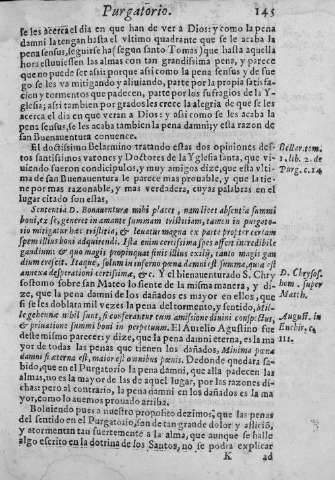 Purgatorio. 145
se les acerca el dia en que han de ver a Dios: y como la pena
damni la tengan hasta el vltimo quadrante que se le acaba la
pena sensus, seguirseha (segun santo Tomas) que hasta aquella
hora estuuiessen las almas con tan grandissima pena, y parece
que no puede ser assi: porque assi como la pena sensus y de fue
go se les va mitigando y aliuiando, parte por la propia satisfa-
cion y tormentos que padecen, parte por los sufragios de la Y-
glesia; assi tambien por grados les crece la alegria de que se les
acerca el dia en que veran a Dios: y assi como se les acaba la
pena sensus, se les acaba tambien la pena damni; y esta razon de
san Buenauentura conuence.
El doctissimo Belarmino tratando estas dos opiniones des-
tos santissimos varones y Doctores de la Yglesia santa, que vi-
uiendo fueron condicipulos, y muy amigos dize, que esta vlti-
ma de san Buenauentura le parece mas prouable, y que la tie-
ne por mas razonable, y mas verdadera, cuyas palabras en el
lugar citado son estas,
Bellar. tom.
1. lib. 2. de
Purg. c. 14
Sententia D. Bonauenturæ mihi placet, nam licet absentia summi
boni, ex se, generet in amante summam tristitiam, tamen in purgato-
rio mitigatur hæc tristitia, & leuatur magna ex parte propter certam
spem illius boni adquirendi. Ista enim certissima spes affert incredibile
gaudium: & quo magis propinquat finis illius exilij, tanto magis gau
dium crescit. Itaque, solum in inferno pena damni est summa, quia est
annexa desperationi certissimæ, &c. Y el bienauenturado S. Chry
sostomo sobre san Mateo lo siente de la misma manera, y di-
ze, que la pena damni de los dañados es mayor en ellos, que
si se les doblara mil vezes la pena del tormento, y sentido, Mil-
le gehennæ nihil sunt, si conferantur cum amissione diuini conspectus,
& priuatione summi boni in perpetuum. El Aurelio Agustino fue
deste mismo parecer; y dize, que la pena damni eterna, es la ma
yor de todas las penas que tienen los dañados, Minima pena
damni si æterna est, maior est omnibus penis. Dedonde quedara sa-
bido, que en el Purgatorio la pena damni, que alla padecen las
almas, no es la mayor de las de aquel lugar, por las razones di-
chas: pero al contrario, la pena damni en los dañados es la ma
yor, como lo auemos prouado arriba.
D. Chrysos.
hom. super
Matth.
August. in
Enchir. c.
111.
Boluiendo pues a nuestro proposito dezimos, que las penas
del sentido en el Purgatorio, son de tan grande dolor y aflicio,
y atormentan tan fuertemente a la alma, que aunque se halle
algo escrito en la dotrina de los Santos, no se podra explicar
K ad